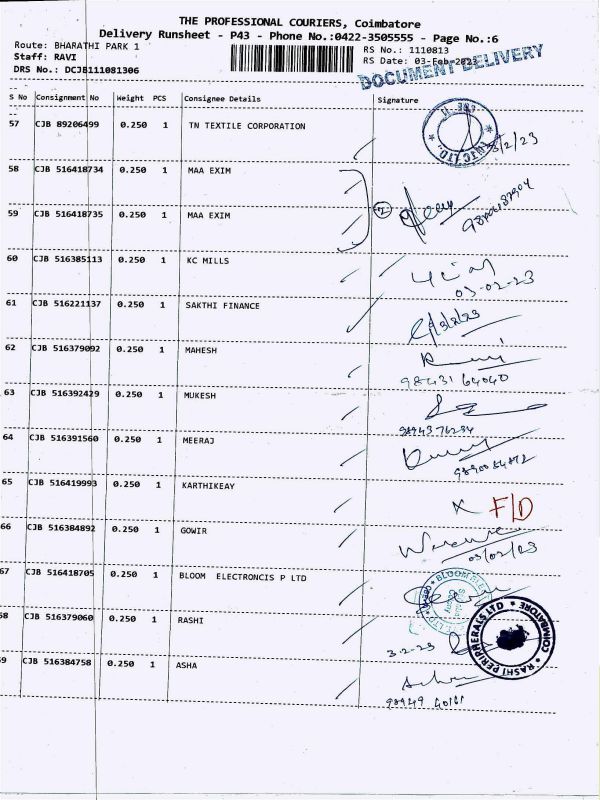 THE PROFESSIONAL COURIERS, Coimbatore
Delivery Runsheet - P43 - Phone No.:0422-3505555 - Page No.:6
Route: BHARATHI PARK 1
RS No.: 1110813
Staff: RAVI
RS Date: 03-Feb-2023
DRS No.: DCJB111081306
DOCUMENT DELIVERY
S No Consignment No Weight PCS Consignee Details Signature
57 CJB 89206499 0.250 1 TN TEXTILE CORPORATION
3/2/23
58 CJB 516418734 0.250 1 MAA EXIM
59 CJB 516418735 0.250 1 MAA EXIM
60 CJB 516385113 0.250 1 KC MILLS
03-02-23
61 CJB 516221137 0.250 1 SAKTHI FINANCE
62 CJB 516379092 0.250 1 MAHESH
98431 64040
63 CJB 516392429 0.250 1 MUKESH
64 CJB 516391560 0.250 1 MEERAJ
65 CJB 516419993 0.250 1 KARTHIKEAY
F/D
66 CJB 516384892 0.250 1 GOWIR
03/02/23
67 CJB 516418705 0.250 1 BLOOM ELECTRONCIS P LTD
68 CJB 516379060 0.250 1 RASHI
3-2-23
RASHI PERIPHERALS LTD COIMBATORE
69 CJB 516384758 0.250 1 ASHA